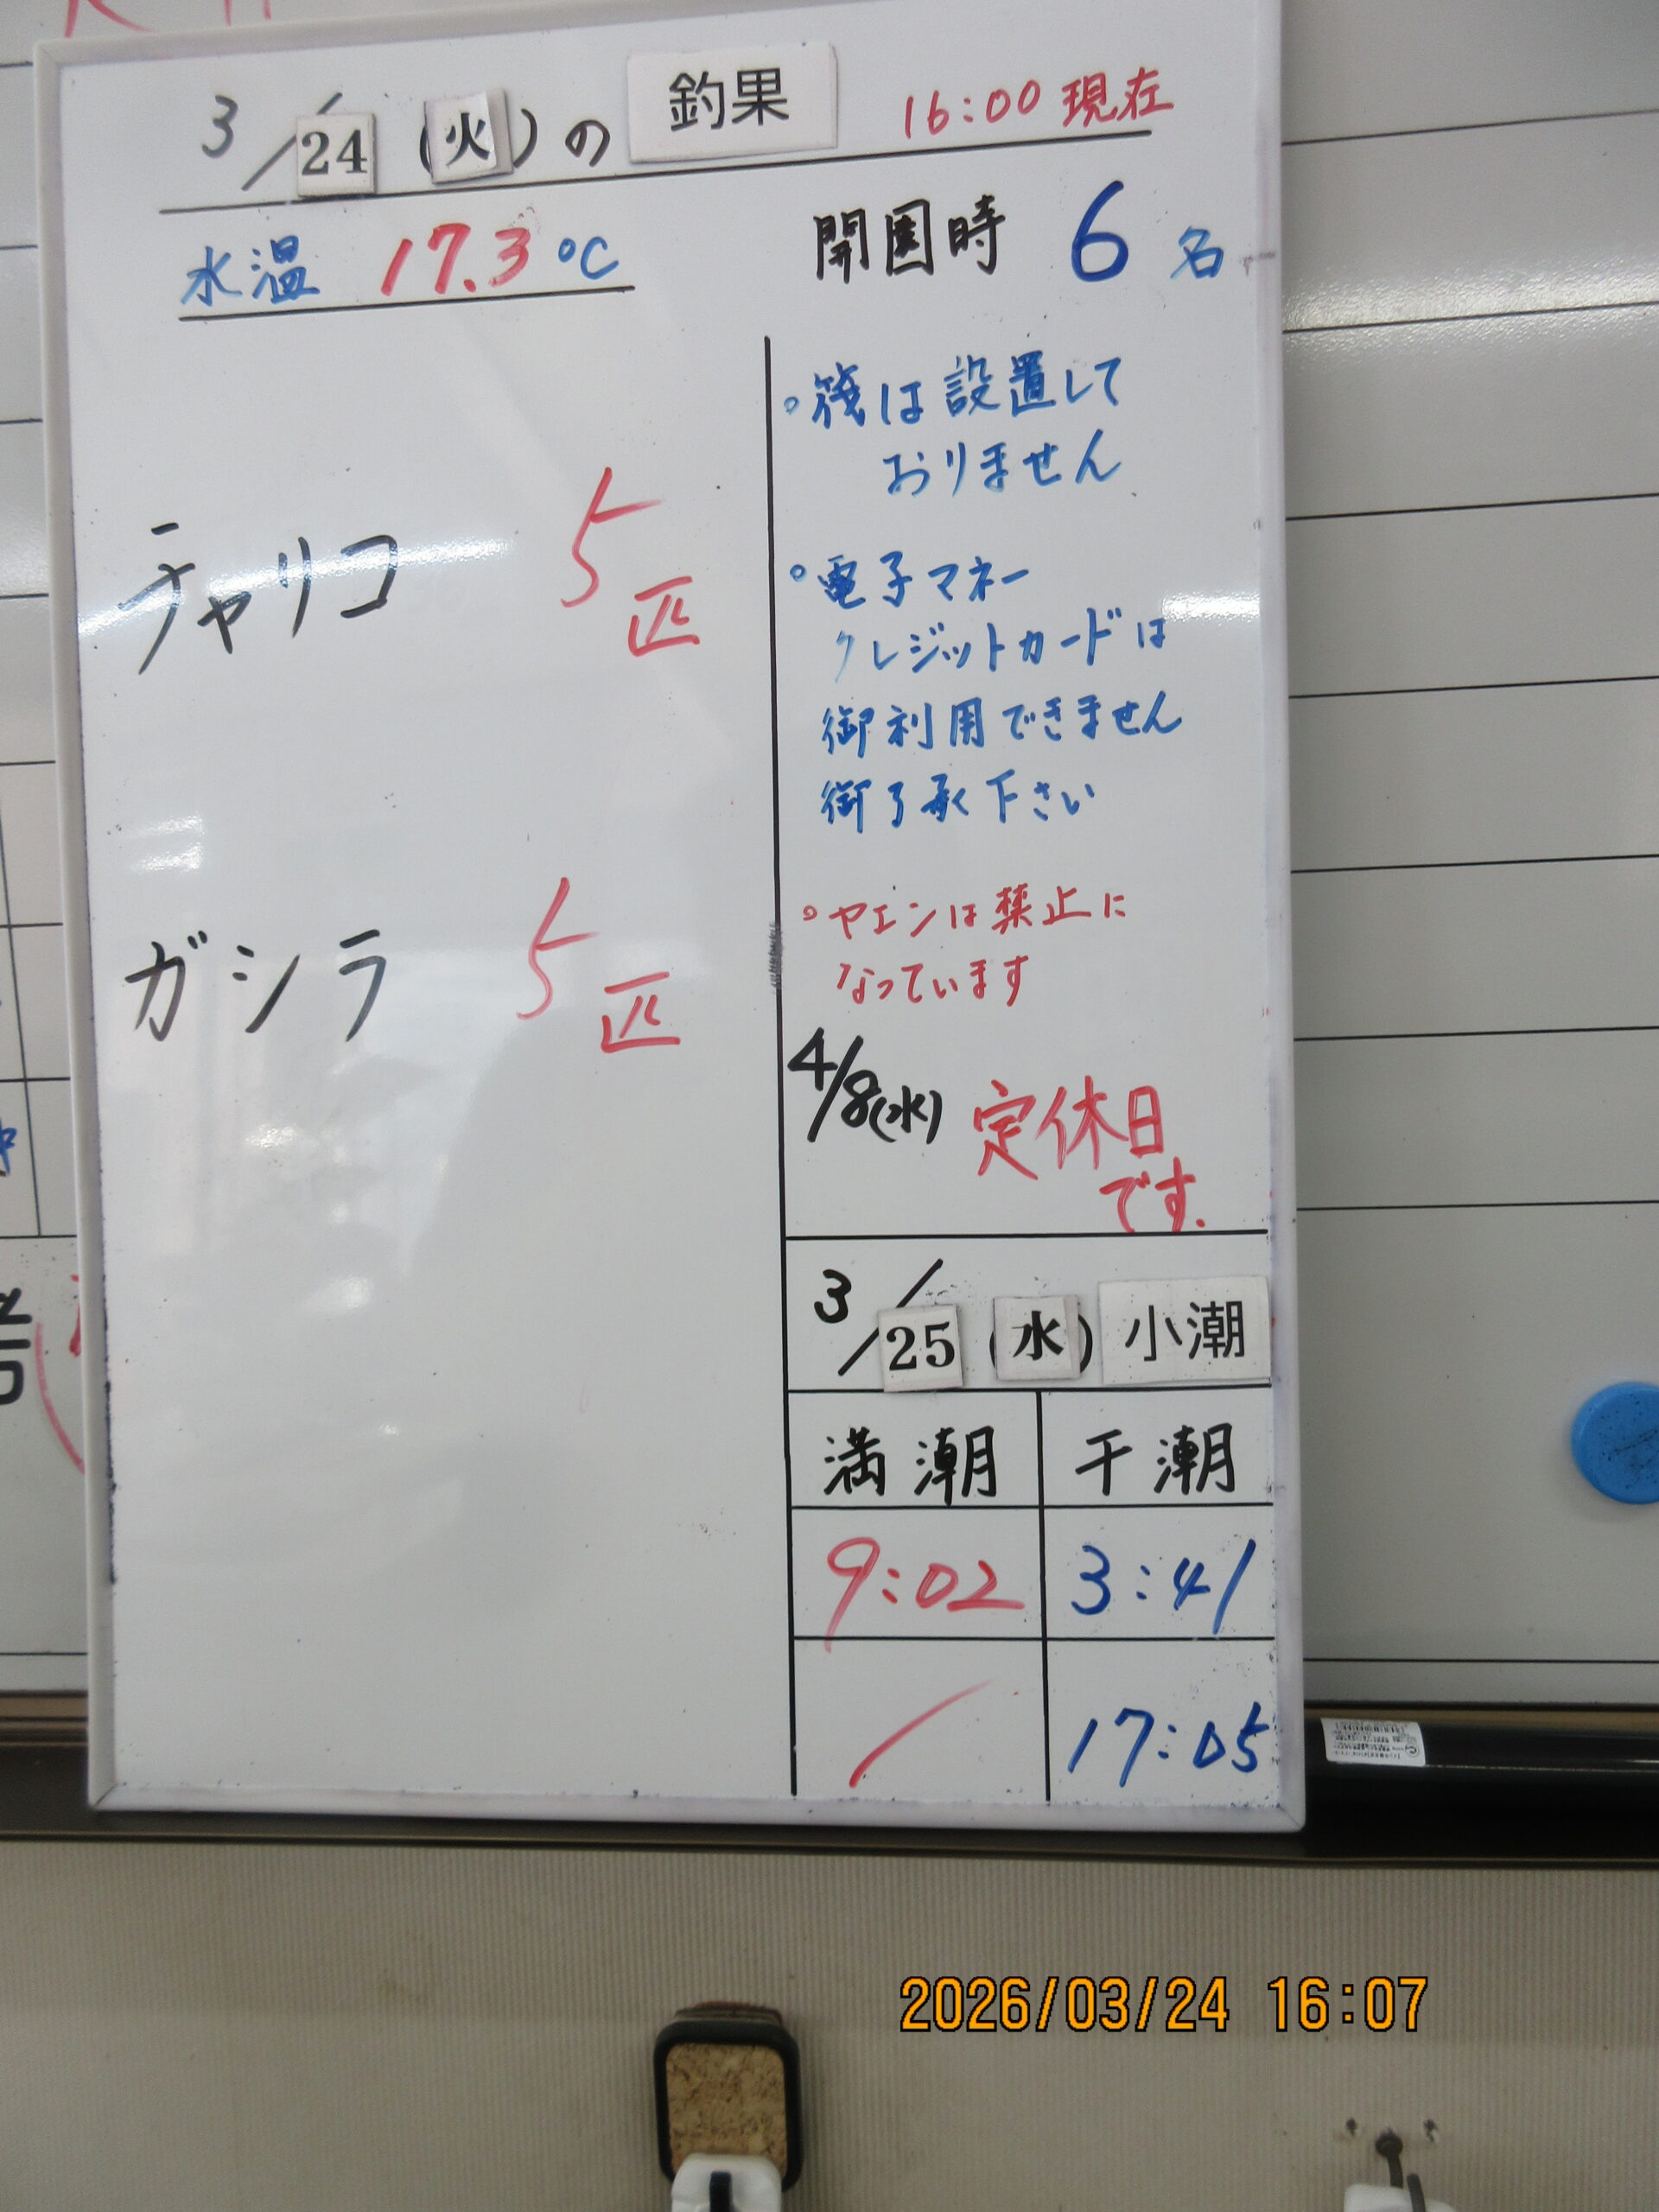 3/24(火)の釣果 16:00現在
水温 17.3℃
開園時 6名
チャリコ 5匹
ガシラ 5匹
。筏は設置して
おりません
。電子マネー
クレジットカードは
御利用できません
御了承下さい
。ヤエンは禁止に
なっています
4/8(水) 定休日
です.
3/25(水) 小潮
満潮 干潮
9:02 3:41
/ 17:05
2026/03/24 16:07